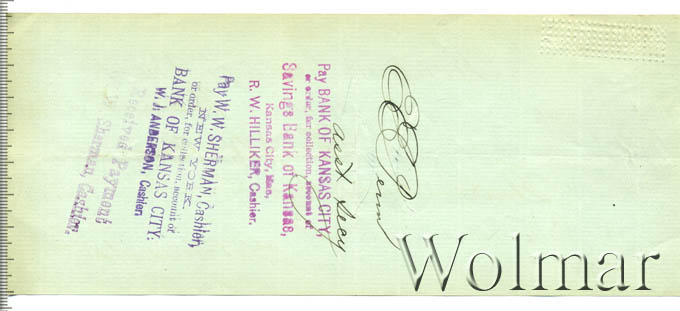 asst Secy
Pay BANK OF KANSAS CITY,
or order, for collection, account of
Savings Bank of Kansas,
Kansas City, Kas.
R. W. HILLIKER, Cashier.
Pay W. W. SHERMAN, Cashier,
NEW YORK
or order, for collection, account of
BANK OF KANSAS CITY.
W. J. ANDERSON, Cashier
Received Payment
W. W. Sherman, Cashier.
Wolmar